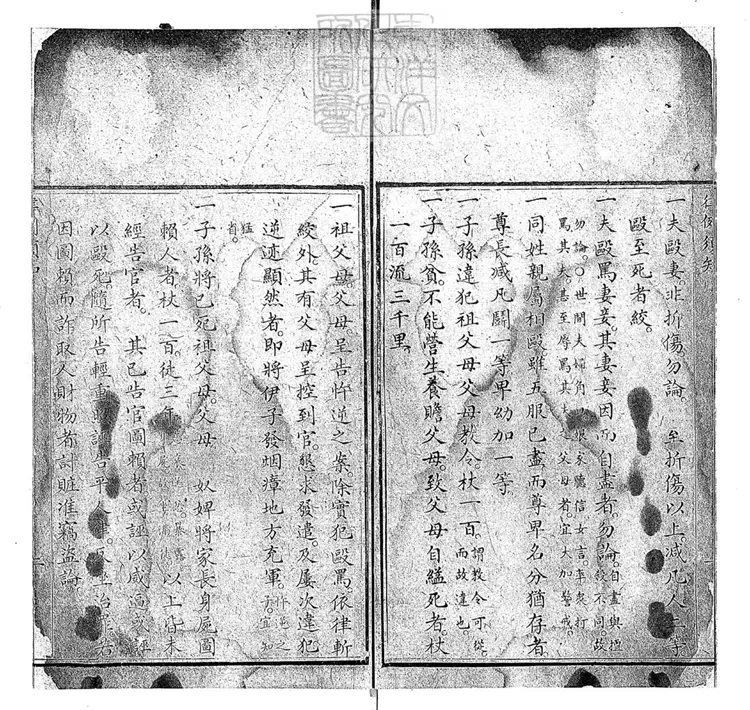 一夫毆妻非折傷勿論。至折傷以上減凡人二等
毆至死者絞。
一夫毆罵妻妾。其妻妾因而自盡者。勿論。自盡與
不同。故
勿論。○世間夫婦角口
家聽信女言。率衆打
罵其夫。甚至辱罵其
父母者。宜大加警戒。
一同姓親屬相毆雖五服已盡而尊卑名分猶存者。
尊長減凡鬬一等卑幼加一等。
一子孫違犯祖父母父母教令。杖一百。謂教令可從。而故違也。
一子孫貧。不能營生養贍父母。致父母自縊死者。杖
一百流三千里。
一祖父母。父母。呈告忤逆之案。除實犯毆罵。依律斬
絞外。其有父母呈控到官。懇求發遣。及屢次違犯
逆迹顯然者。即將伊子發烟瘴地方充軍。忤逆之子。宜知
猛省。
一子孫將已死祖父母。父母 奴婢將家長身屍圖
賴人者杖一百。徒三年 以上皆未
經告官者。 其已告官圖賴者或誣以威逼或誣
以毆死隨所告輕重 誣告平人律。反坐治罪若
因圖賴而詐取人財物者計贓准竊盜論